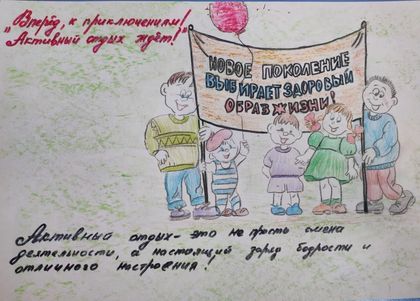 „Вперёд, к приключениям!
Активный отдых ждёт!"
НОВОЕ ПОКОЛЕНИЕ
ВЫБИРАЕТ ЗДОРОВЫЙ
ОБРАЗ ЖИЗНИ!
Активный отдых - это не прость смена
деятельности, а настоящий заряд бодрости и
отличного настроения!